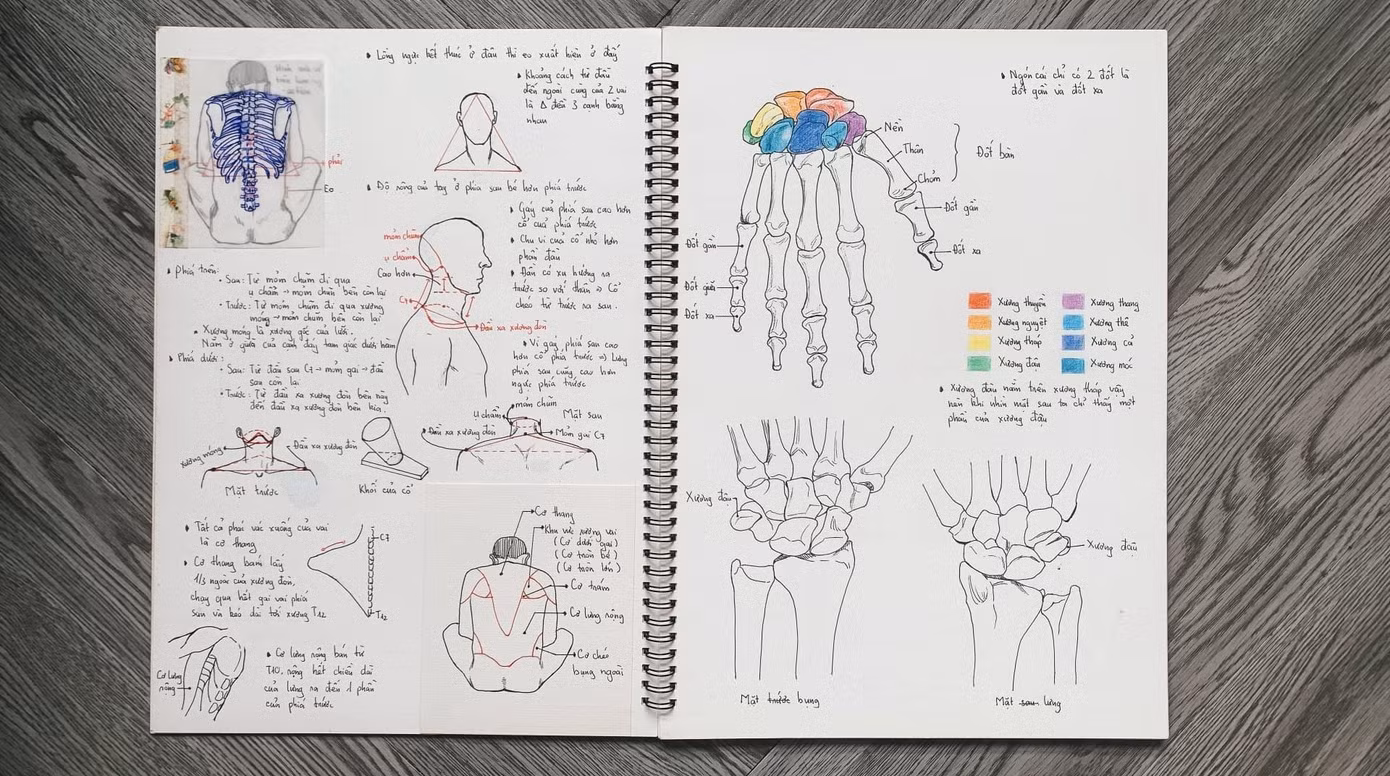 Lồng ngực kết thúc ở đâu thì eo xuất hiện ở đấy
Khoảng cách từ đầu
đến ngoài cùng của 2 vai
là Δ đều 3 cạnh bằng
nhau
phải
Eo
Độ rộng của tay ở phía sau bé hơn phía trước
Gáy của phía sau cao hơn
cổ của phía trước
Chu vi của cổ nhỏ hơn
phần đầu
Đầu có xu hướng ra
trước so với thân ⇒ Cổ
chéo từ trước ra sau.
mỏm chũm
ụ chẩm
Cao hơn
C7
Đầu xa xương đòn
Vì gáy phía sau cao
hơn cổ phía trước ⇒ Lưng
phía sau cũng cao hơn
ngực phía trước
Phía trên:
Sau: Từ mỏm chũm đi qua
ụ chẩm → mỏm chũm bên còn lại
Trước: Từ mỏm chũm đi qua xương
móng → mỏm chũm bên còn lại
Xương móng là xương gốc của lưỡi.
Nằm ở giữa của cạnh đáy tam giác dưới hàm
Phía dưới:
Sau: Từ đầu sau C7 → mỏm gai → đầu
sau còn lại
Trước: Từ đầu xa xương đòn bên này
đến đầu xa xương đòn bên kia.
Xương móng
Đầu xa xương đòn
Mặt trước
Khối của cổ
mỏm chũm
ụ chẩm
Mặt sau
Đầu xa xương đòn
Mỏm gai C7
Tất cả phải vác xuống của vai
là cơ thang
Cơ thang bám lấy
1/3 ngoài của xương đòn,
chạy qua hết gai vai phía
sau và kéo dài tới xương T12
C7
T12
Cơ lưng
rộng
Cơ lưng rộng bán từ
T10, rộng hết chiều dài
của lưng ra đến 1 phần
của phía trước
Cơ thang
Khu vực xương vai
(Cơ dưới gai)
(Cơ tròn bé)
(Cơ tròn lớn)
Cơ trám
Cơ lưng rộng
Cơ chéo
bụng ngoài
Ngón cái chỉ có 2 đốt là
đốt gần và đốt xa
Nền
Thân
Chỏm
Đốt bàn
Đốt gần
Đốt xa
Đốt gần
Đốt giữa
Đốt xa
Xương thuyền
Xương thang
Xương nguyệt
Xương thê
Xương tháp
Xương cả
Xương đậu
Xương móc
Xương đậu nằm trên xương tháp vậy
nên khi nhìn mặt sau ta chỉ thấy một
phần của xương đậu
Xương đậu
Xương đậu
Mặt trước bụng
Mặt sau lưng